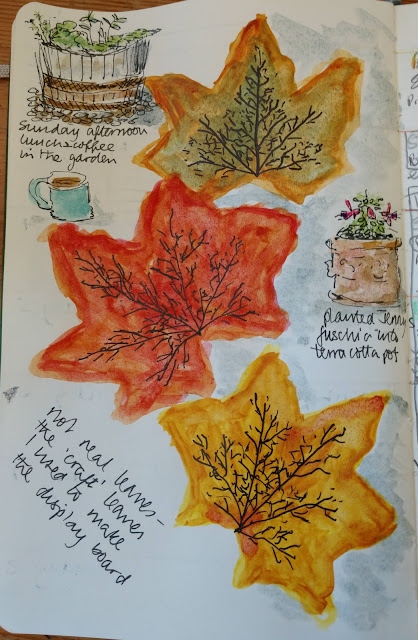 Sunday afternoon
lunch & coffee
in the garden
planted Jenny
fuschia into
terracotta pot
not real leaves -
the 'craft' leaves
I used to make
the display board